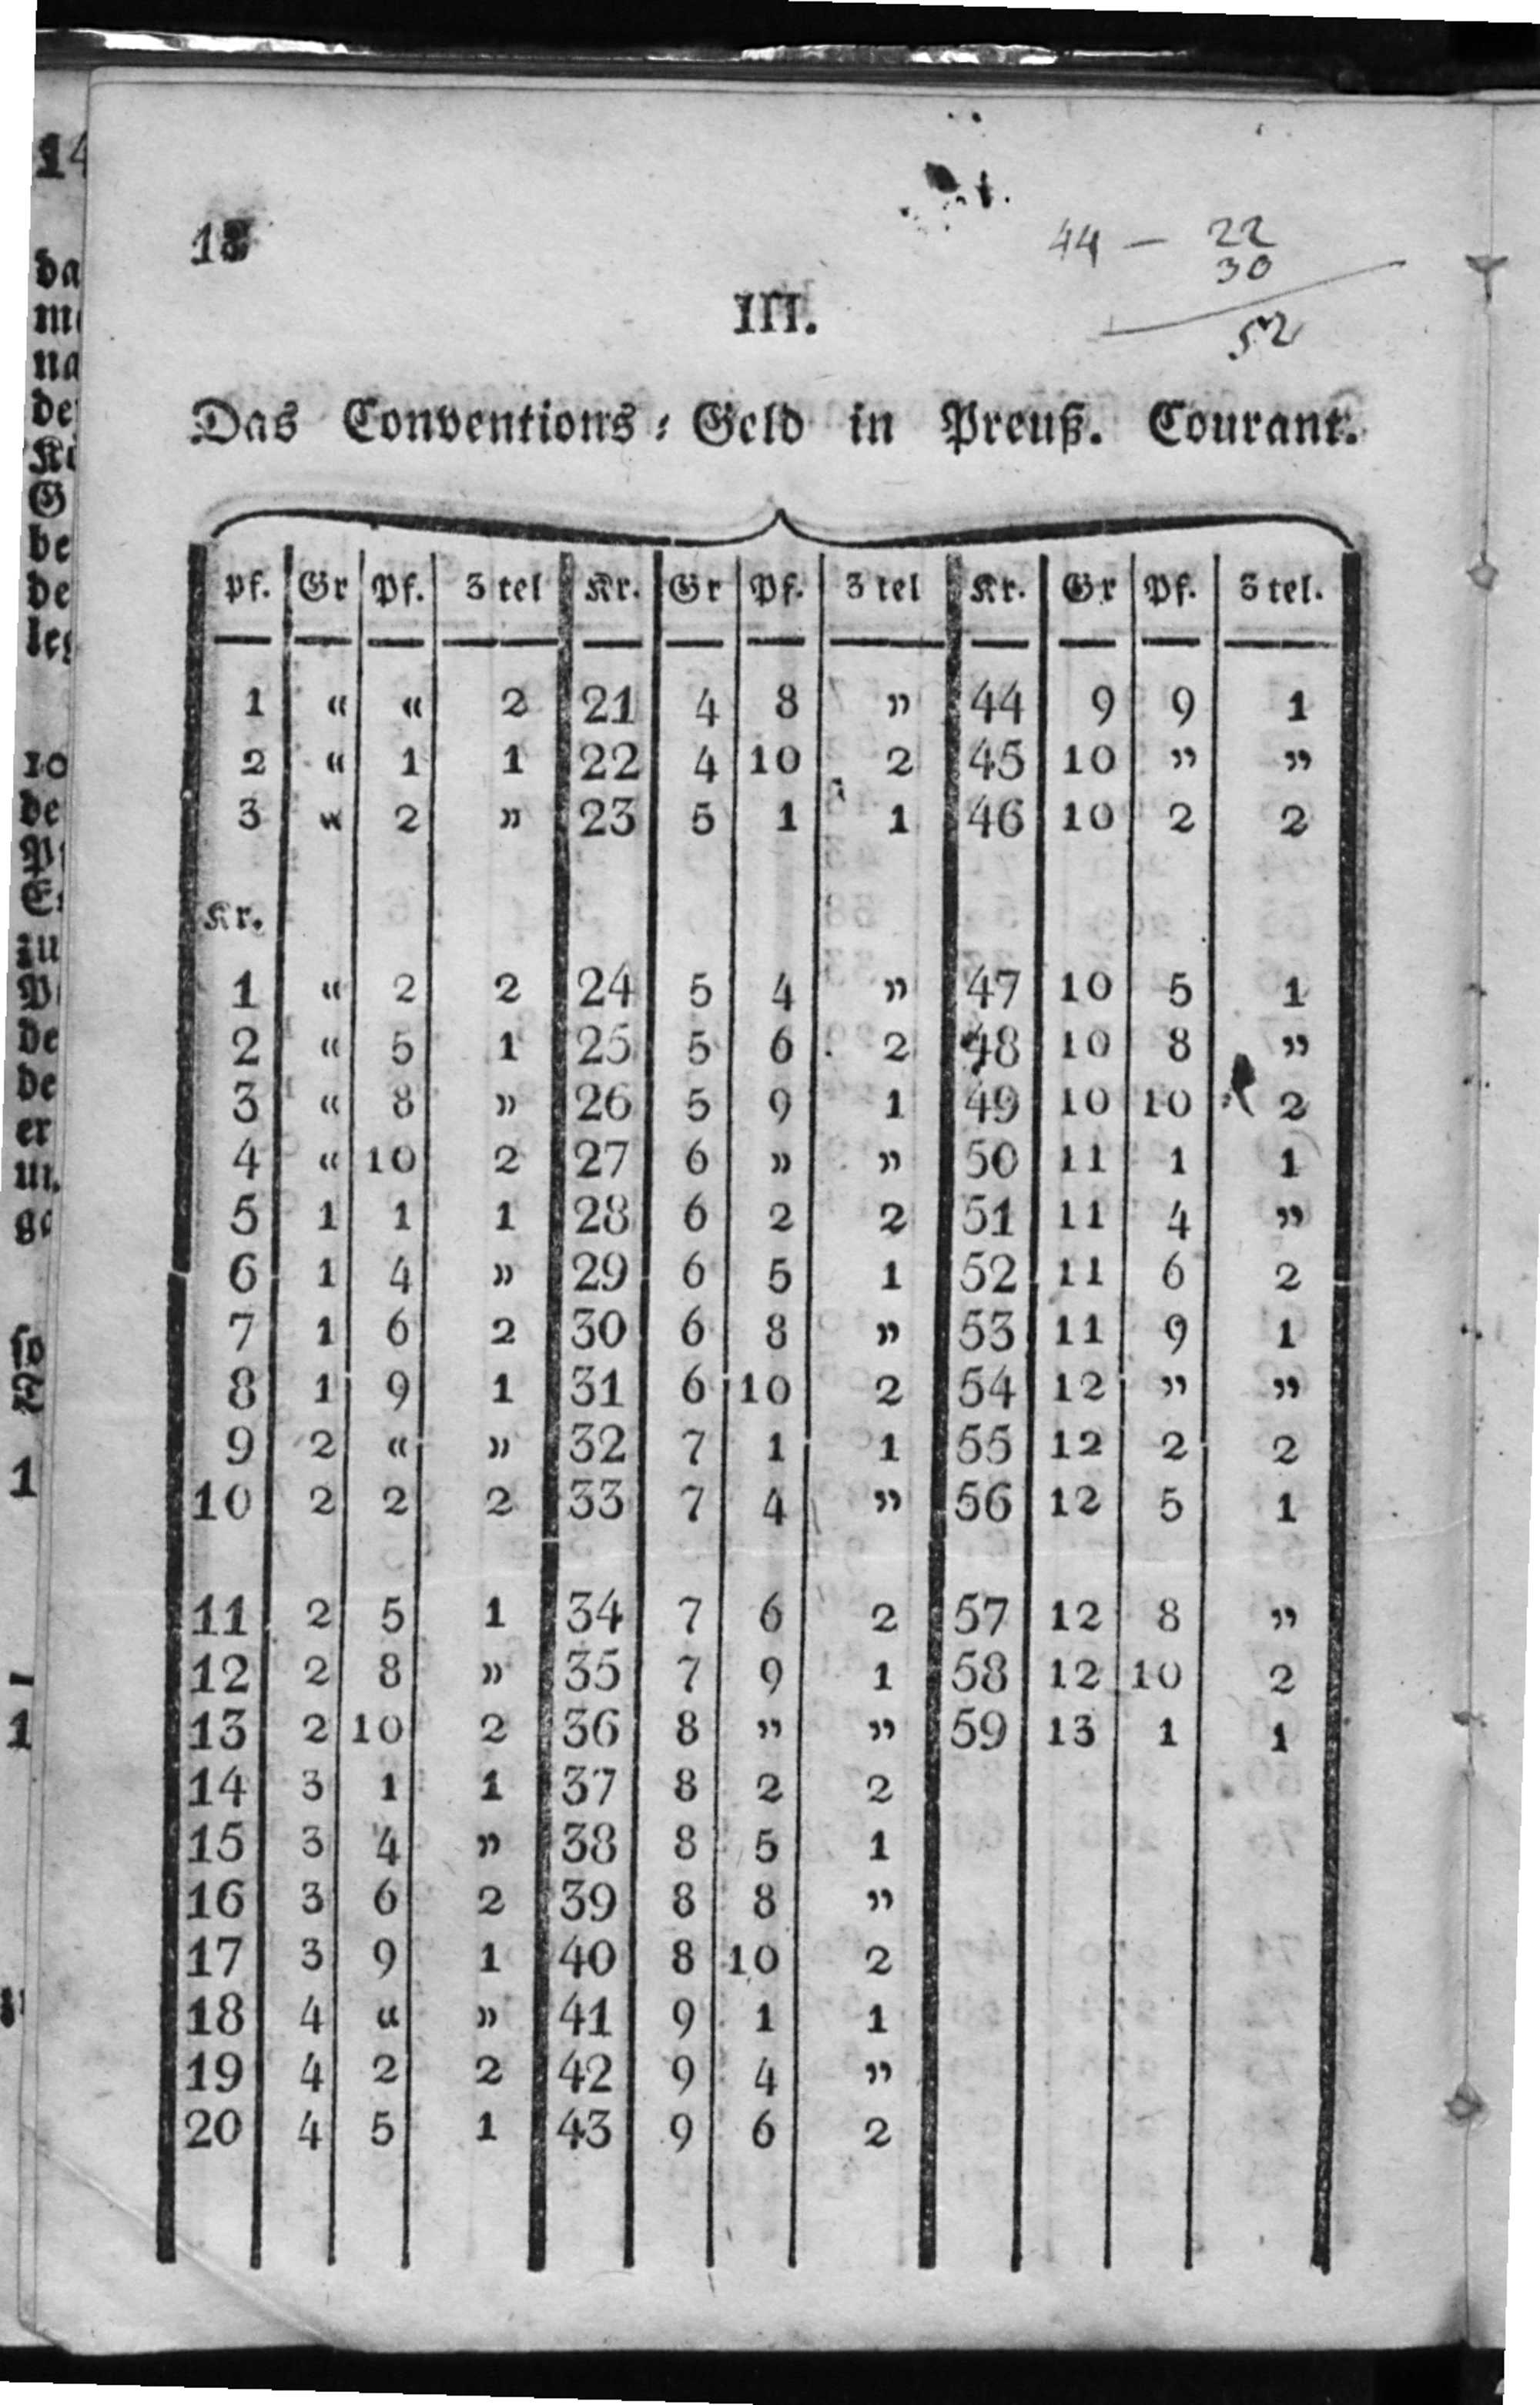 18
44 — 22
30
52
III.
Das Conventions-Geld in Preuß. Courant.
pf. Gr Pf. 3 tel Kr. Gr Pf. 3 tel Kr. Gr Pf. 3 tel.
1 “ “ 2 21 4 8 ” 44 9 9 1
2 “ 1 1 22 4 10 2 45 10 ” ”
3 “ 2 ” 23 5 1 1 46 10 2 2
Kr.
1 “ 2 2 24 5 4 ” 47 10 5 1
2 “ 5 1 25 5 6 2 48 10 8 ”
3 “ 8 ” 26 5 9 1 49 10 10 2
4 “ 10 2 27 6 ” ” 50 11 1 1
5 1 1 1 28 6 2 2 51 11 4 ”
6 1 4 ” 29 6 5 1 52 11 6 2
7 1 6 2 30 6 8 ” 53 11 9 1
8 1 9 1 31 6 10 2 54 12 ” ”
9 2 “ ” 32 7 1 1 55 12 2 2
10 2 2 2 33 7 4 ” 56 12 5 1
11 2 5 1 34 7 6 2 57 12 8 ”
12 2 8 ” 35 7 9 1 58 12 10 2
13 2 10 2 36 8 ” ” 59 13 1 1
14 3 1 1 37 8 2 2
15 3 4 ” 38 8 5 1
16 3 6 2 39 8 8 ”
17 3 9 1 40 8 10 2
18 4 “ ” 41 9 1 1
19 4 2 2 42 9 4 ”
20 4 5 1 43 9 6 2